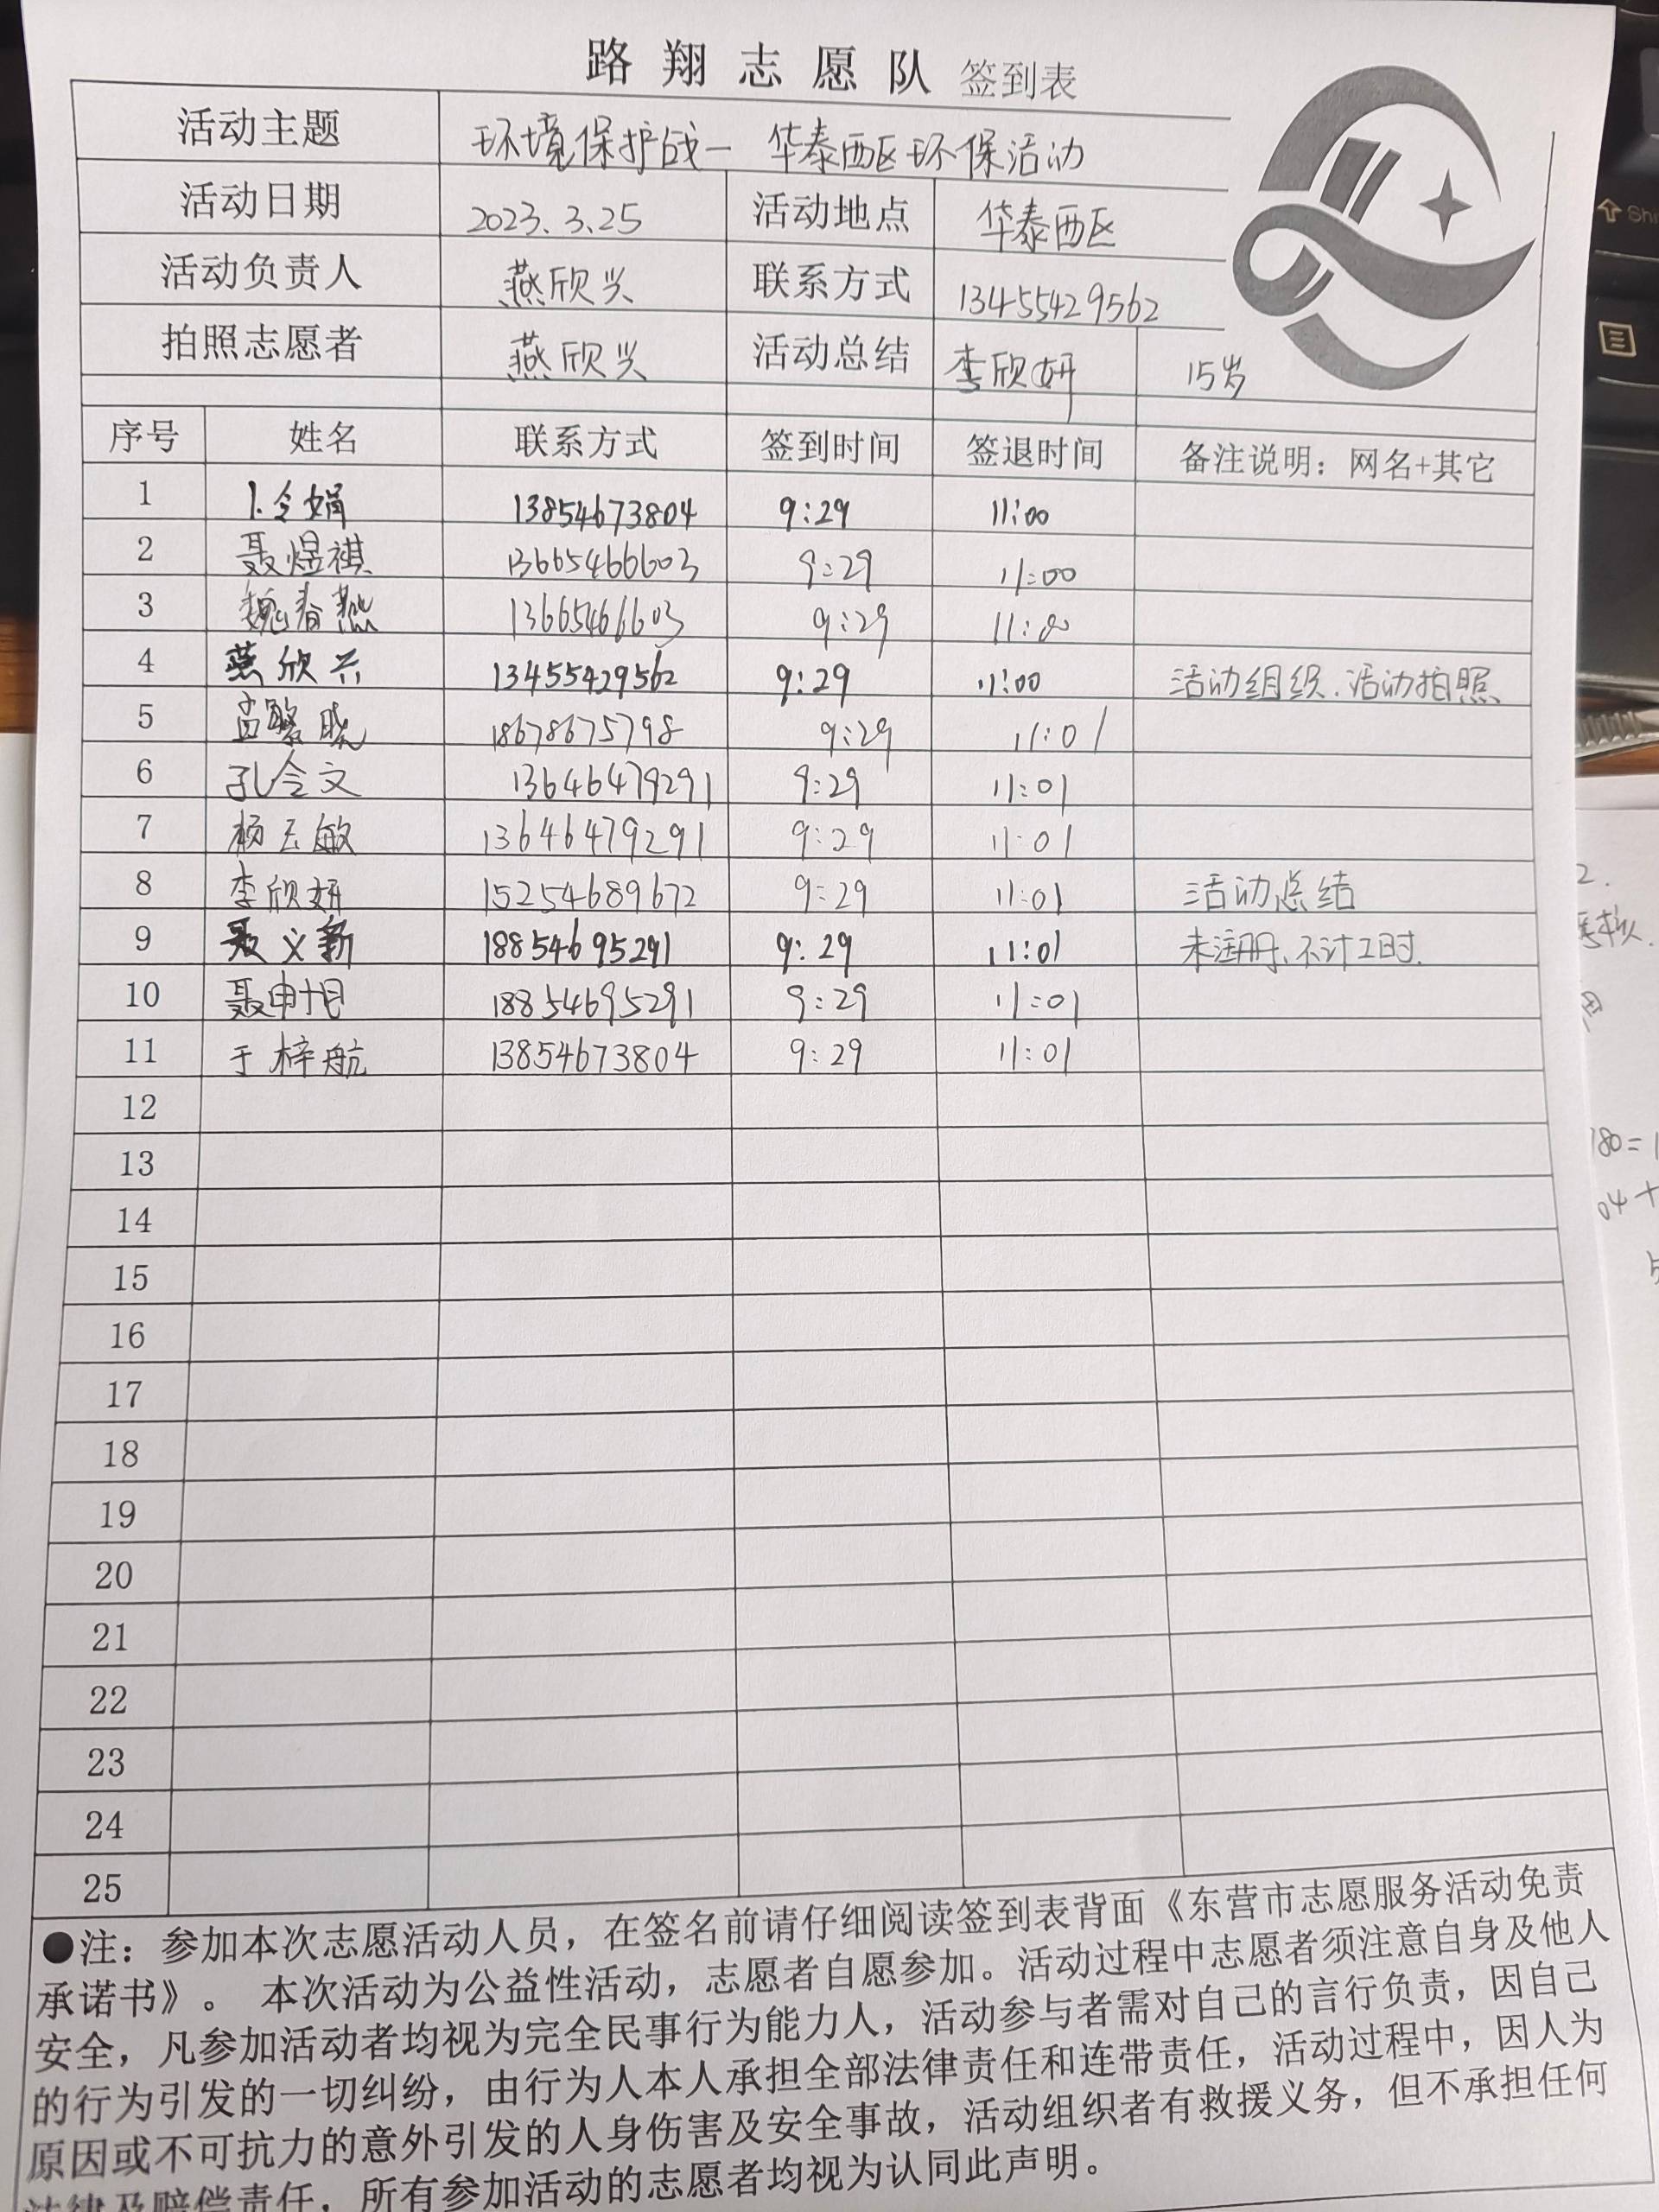 路翔志愿队 签到表
活动主题 环境保护战— 华泰西区环保活动
活动日期 2023.3.25 活动地点 华泰西区
活动负责人 燕欣兴 联系方式 13455429562
拍照志愿者 燕欣兴 活动总结 李欣妍 15岁
序号 姓名 联系方式 签到时间 签退时间 备注说明：网名+其它
1 令娟 13854673804 9:29 11:00
2 聂煜祺 13665466603 9:29 11:00
3 魏春燕 1366546603 9:29 11:00
4 燕欣兴 13455429562 9:29 11:00 活动组织.活动拍照
5 孟繁晓 18678675798 9:29 11:01
6 孔令文 13646479291 9:29 11:01
7 杨玉敏 13646479291 9:29 11:01
8 李欣妍 15254689672 9:29 11:01 活动总结
9 聂义新 18854695291 9:29 11:01 未注册、不计工时.
10 聂申 18854695291 9:29 11:01
11 于梓航 13854673804 9:29 11:01
12
13
14
15
16
17
18
19
20
21
22
23
24
25
●注：参加本次志愿活动人员，在签名前请仔细阅读签到表背面《东营市志愿服务活动免责
承诺书》。 本次活动为公益性活动，志愿者自愿参加。活动过程中志愿者须注意自身及他人
安全，凡参加活动者均视为完全民事行为能力人，活动参与者需对自己的言行负责，因自己
的行为引发的一切纠纷，由行为人本人承担全部法律责任和连带责任，活动过程中，因人为
原因或不可抗力的意外引发的人身伤害及安全事故，活动组织者有救援义务，但不承担任何
法律及赔偿责任，所有参加活动的志愿者均视为认同此声明。